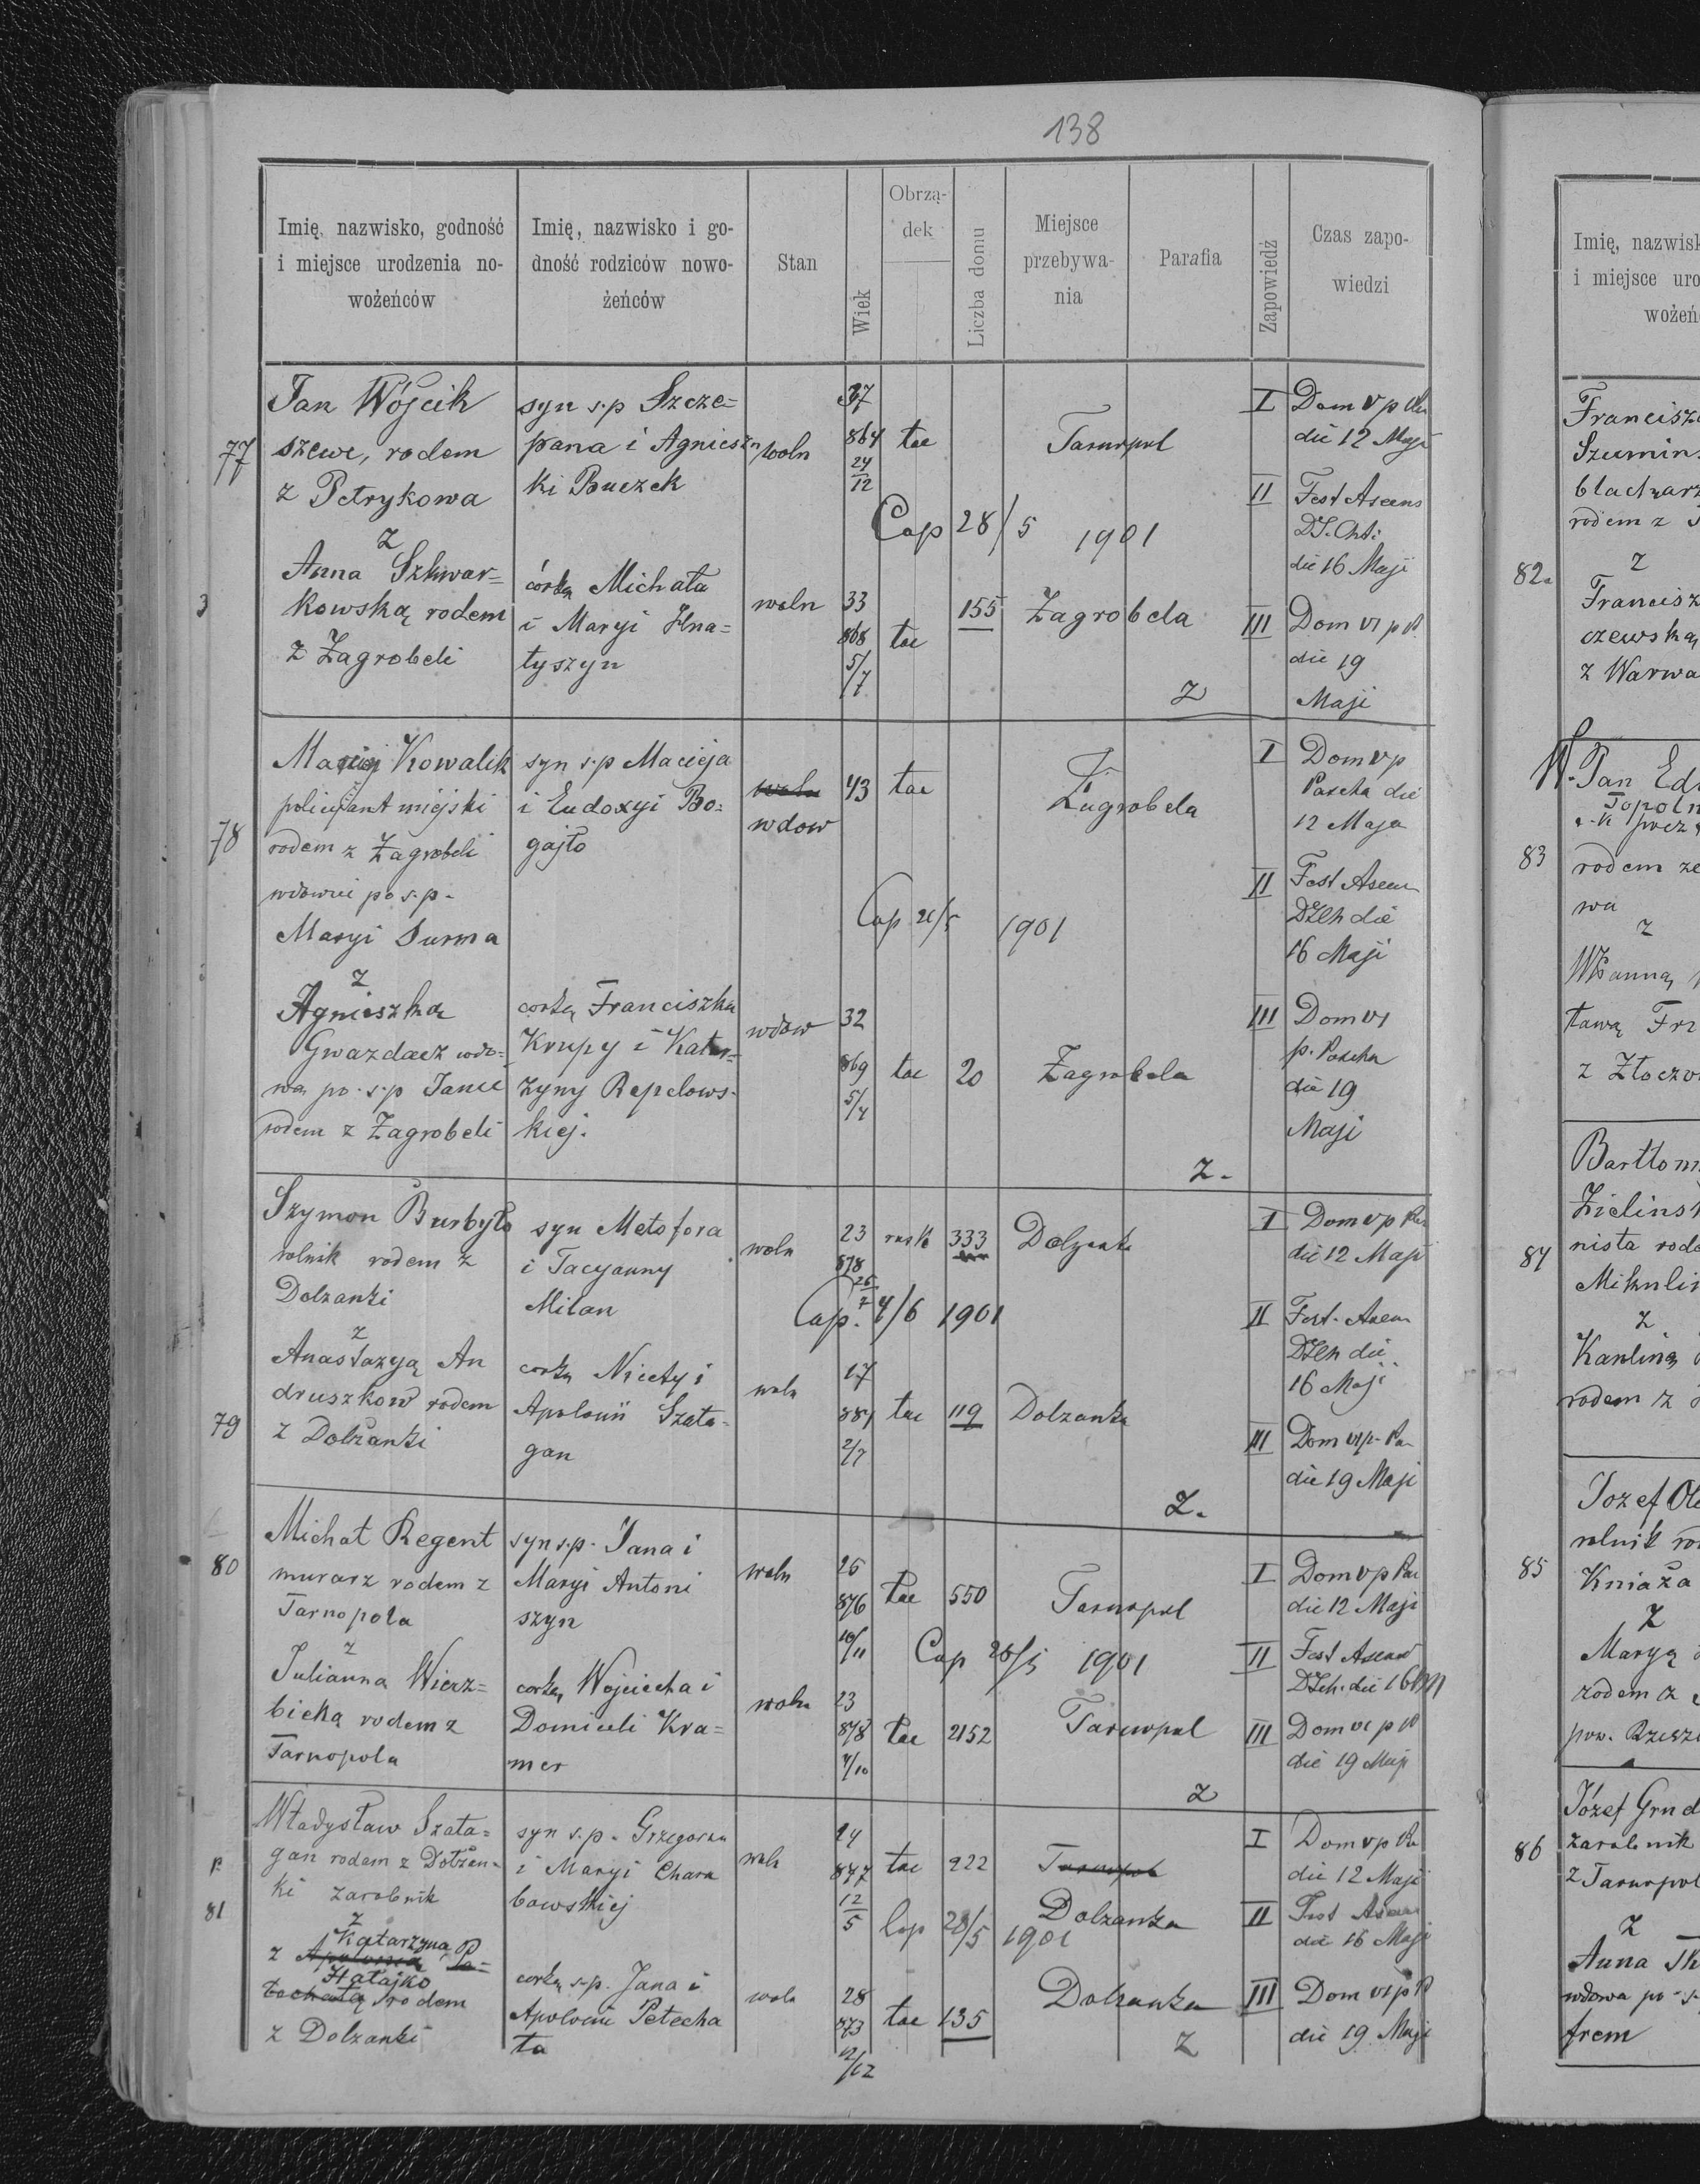 138
Imię, nazwisko, godność i miejsce urodzenia nowożeńców
Imię, nazwisko i godność rodziców nowożeńców
Stan
Wiek
Obrządek
Liczba domu
Miejsce przebywania
Parafia
Zapowiedź
Czas zapowiedzi
77
Jan Wójcik
szewc, rodem
z Petrykowa
syn s.p Szcze=
pana i Agniesz
ki Buczek
woln
37
864
24
12
łac
Tarnopol
I Dom V p
die 12 Maji
II Fest Ascens
die 16 Maji
Cap 28/5 1901
z
Anna Szkwar=
kowską rodem
z Zagrobeli
córką Michała
i Maryi Hna=
tyszyn
woln
33
868
5/7
łac
155
Zagrobela
III Dom VI p
die 19
Maji
z
78
Maciej Kowalik
policyant miejski
rodem z Zagrobeli
wdowiec po s.p.
Maryi Surma
syn s.p Macieja
i Eudoxyi Bo=
gajło
woln
wdow
43
łac
Zagrobela
I Dom V p
Pascha die
12 Maja
II Fest Ascen
die
16 Maji
Cap 21/5 1901
z
Agnieszka
Gwazdacz wdo=
wa po s.p Janie
rodem z Zagrobeli
corką Franciszka
Krupy i Katar=
zyny Repelows-
kiej.
wdow
32
869
5/4
łac
20
Zagrobela
III Dom VI
p. Pascha
die 19
Maji
z.
79
Szymon Burbyło
rolnik rodem z
Dolzanki
syn Metofora
i Tacyanny
Milan
woln
23
878
26
7
rusk
333
Dolzanka
I Dom V p
die 12 Maji
Cap. 4/6 1901
II Fest. Ascen
die
16 Maji
z
Anastazyą An
druszków rodem
z Dolżanki
corką Nicety i
Apolonii Szata-
gan
woln
17
881
2/7
łac
119
Dolzanka
III Dom VI p. Pa
die 19 Maji
z.
80
Michał Regent
murarz rodem z
Tarnopola
syn s.p. Jana i
Maryi Antoni
szyn
woln
26
876
10/11
łac
550
Tarnopol
I Dom V p Pa
die 12 Maji
Cap 28/5 1901
II Fest Ascen
die 16
z
Julianna Wierz=
bicką rodem z
Tarnopola
corką Wojciecha i
Domiceli Kra=
mer
woln
23
878
4/10
łac
2152
Tarnopol
III Dom VI p
die 19 Maji
z
81
Władysław Szata=
gan rodem z Dolżan-
ki zarobnik
syn s.p. Grzegorza
i Maryi Chara
bowskiej
woln
24
877
12
5
łac
922
Tarnopol
Dolzanka
I Dom V p Pa
die 12 Maji
II Fest Ascen
die 16 Maji
Cap 28/5 1901
z
Katarzyna
z Apolonią Pa=
Hałajko
tochatą rodem
z Dolzanki
corką s.p. Jana i
Apolonii Petecha
ta
woln
28
873
12/12
łac
135
Dolzanka
z
III Dom VI p P
die 19 Maji
Imię, nazwisk
i miejsce uro
wożeń
82
Francisz
Szumin
blacharz
rodem z
z
Francisz
czewską
z Warwa
83
Jan Edw
Topoln
rodem ze
wa
z
ławą Frz
z Złoczo
84
Bartłom
Zielinsk
nista rod
Mikulin
z
Karliną
rodem z
85
Jozef Ole
rolnik ro
Kniaża
z
Maryą
rodem z
pow. Rzesz
86
Józef Grud
zarobnik
z Tarnopol
z
Anna
wdowa po s.
frem